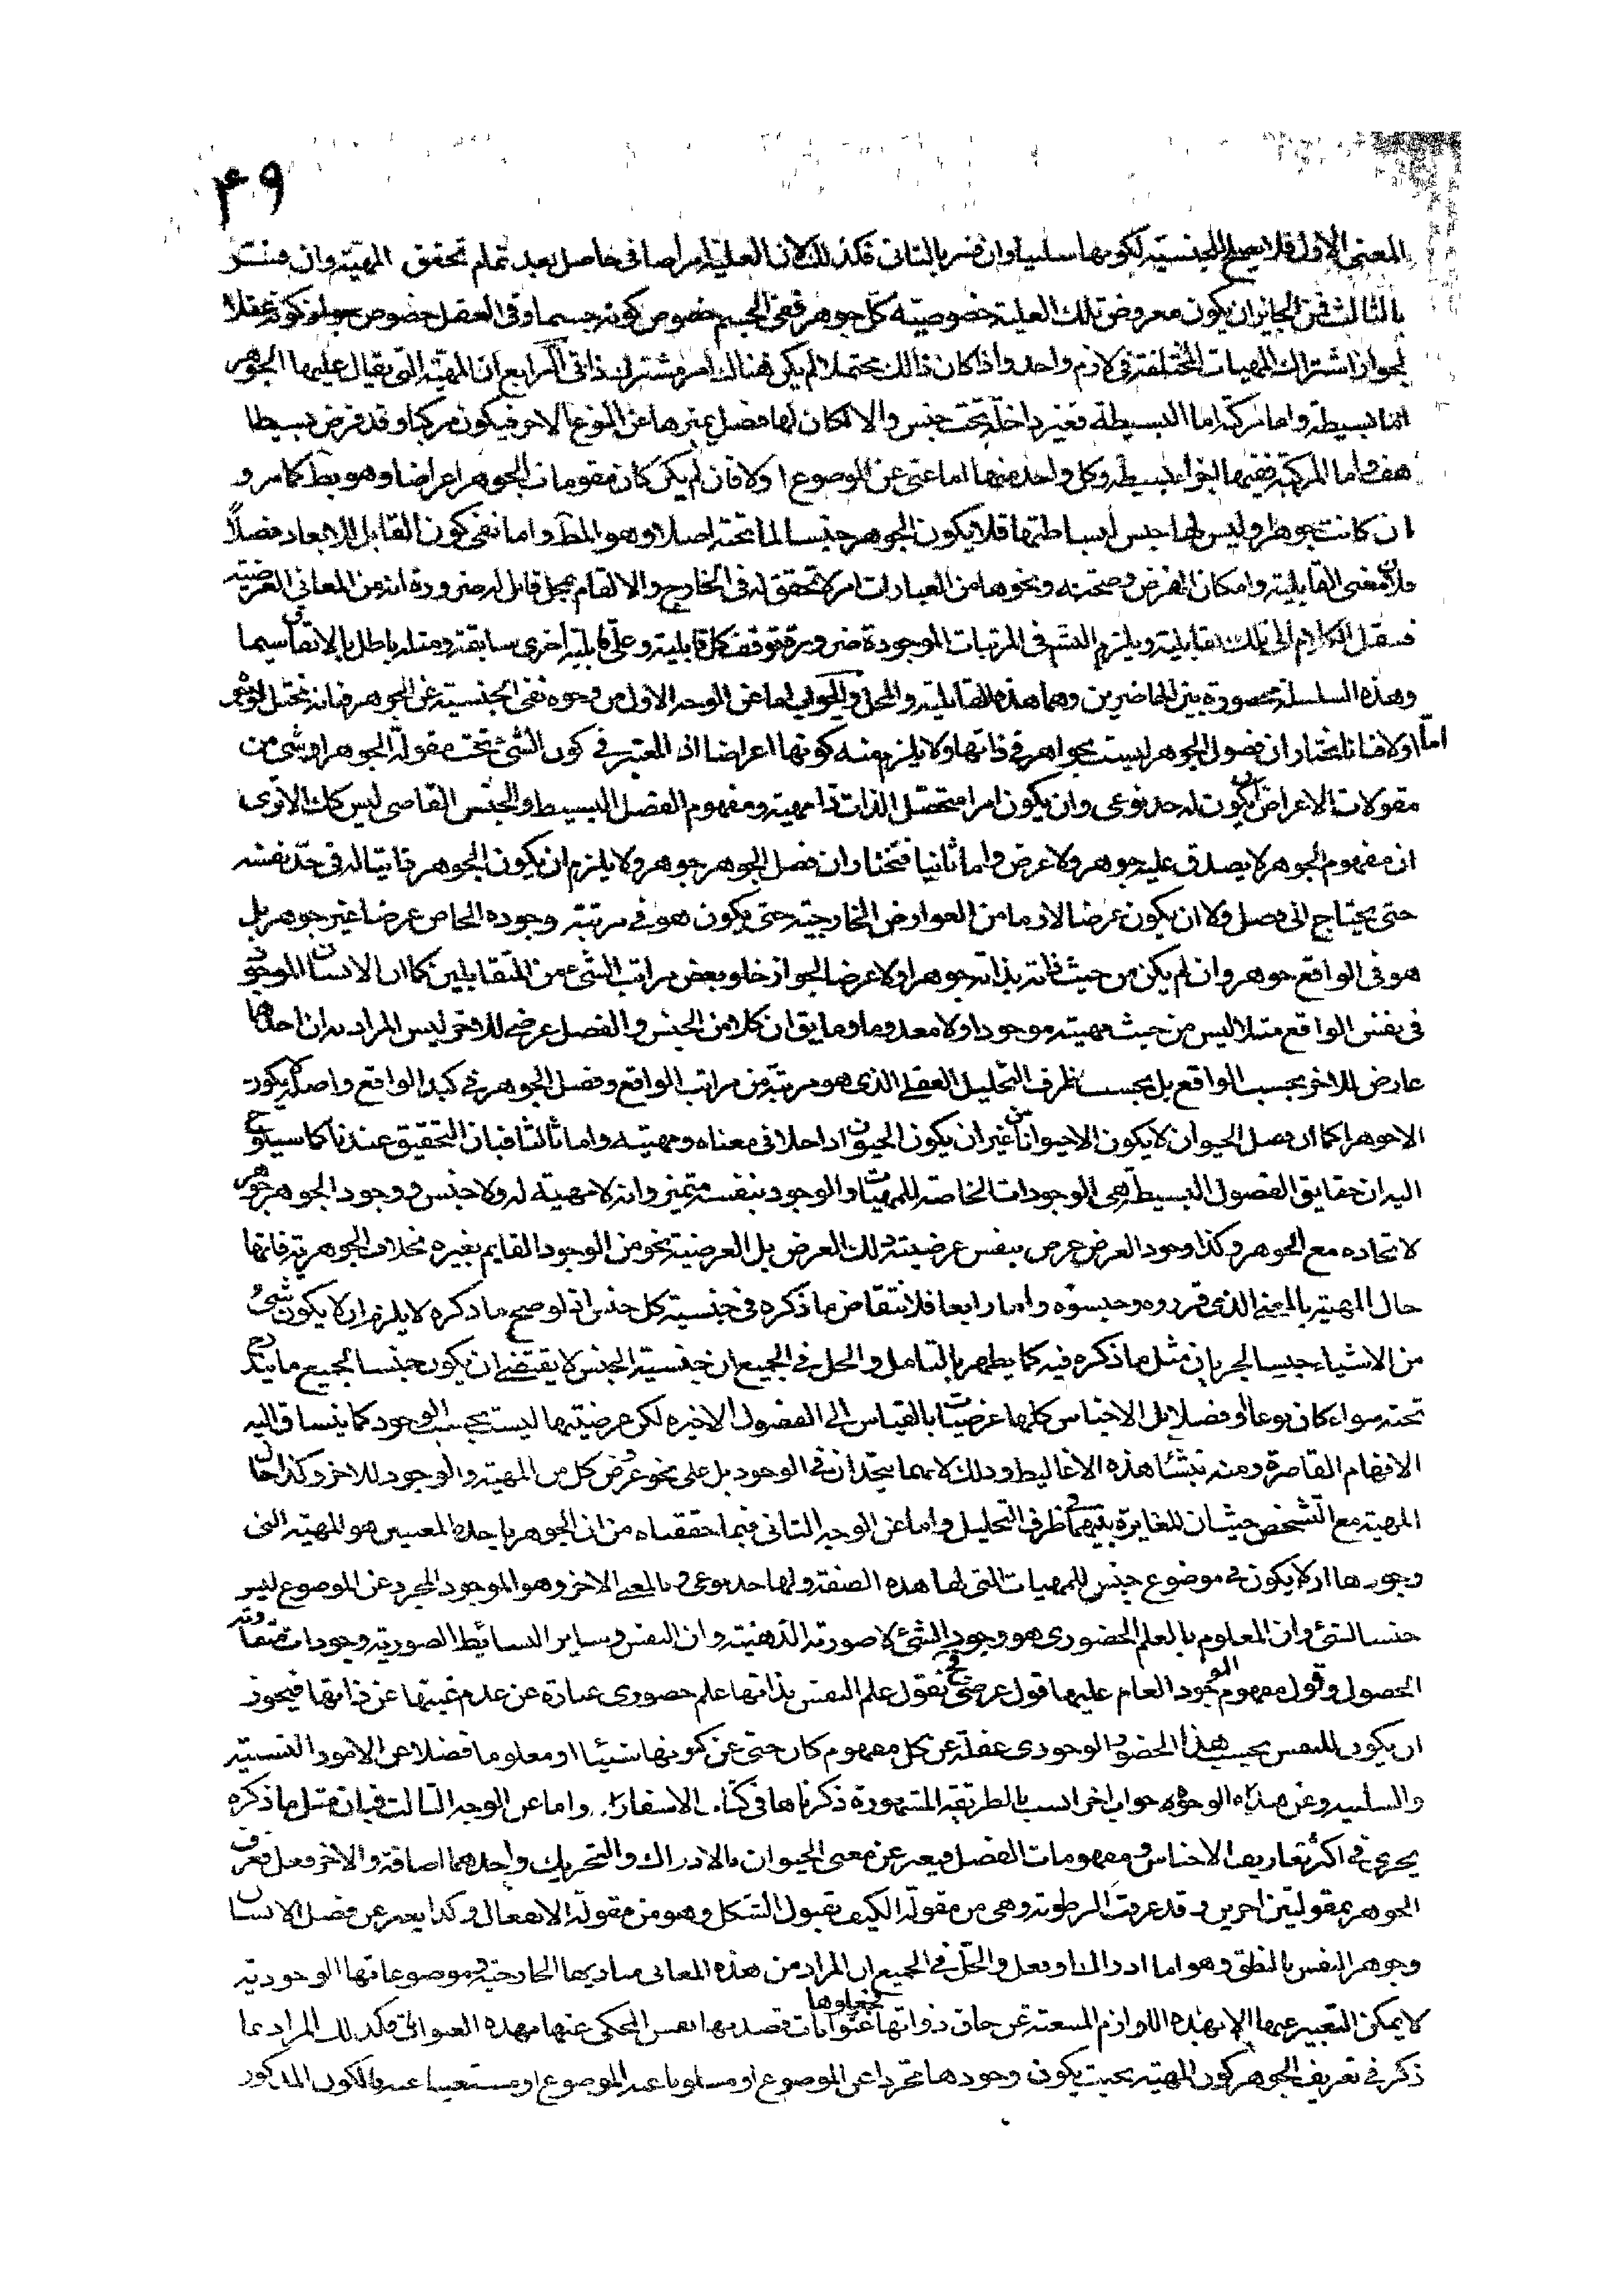 ۴۹
المعنى الاول فلا يصلح للجنسية لكونها سلبيا وان فسر بالثانى فكذلك لان العلية امر اضافى حاصل بعد تمام تحقق المهية وان فسر
بالثالث فمن الجايز ان يكون معروض تلك العلية خصوصية كل جوهر ففى الجسم خصوص كونه جسما وفى العقل خصوص كونه عقلا
لجواز اشتراك المهيات المختلفة فى لازم واحد واذا كان ذلك محتملا لم يكن هناك امر مشترك ذاتى الرابع ان المهية التى يقال عليها الجوهر
اما بسيطة واما مركبة اما البسيطة فغير داخلة تحت جنس والا لكان لها فصل يميزها عن النوع الاخر فيكون مركبا وقد فرض بسيطا
هف واما المركبة ففيها اجزاء بسيطة وكل واحد منها اما غنى عن الموضوع اولا فان لم يكن كان مقومات الجوهر اعراضا وهو بط كما مر و
ان كانت جوهرا وليس لها جنس لبساطتها فلا يكون الجوهر جنسا لما تحته اصلا وهو المط واما نفى كون القابل للابعاد فصلا
فلان معنى القابلية وامكان الفرض وصحته ونحوها من العبارات امر لا تحقق له فى الخارج والا لقام بمحل قابل له ضرورة انه من المعانى العرضية
فينقل الكلام الى تلك القابلية ويلزم التسم فى المرتبات الموجودة ضرورة توقف كل قابلية على قابلية اخرى سابقة ومثله باطل بالاتفاق سيما
وهذه السلسلة محصورة بين الحاصرين وهما هذه القابلية والمحل والجواب اما عن الوجه الاول من وجوه نفى الجنسية عن الجوهر فانه مختل الوجوه
اما اولا فانا نختار ان فصول الجوهر ليست بجواهر فى ذاتها ولا يلزم منه كونها اعراضا اذ المعتبر فى كون الشئ تحت مقولة الجوهر او شئ من
مقولات الاعراض ان يكون له حد نوعى وان يكون امرا متحصل الذات ذا مهية ومفهوم الفصل البسيط والجنس القاصى ليس كك الا ترى
ان مفهوم الجوهر لا يصدق عليه جوهر ولا عرض واما ثانيا فنختار ان فصل الجوهر جوهر ولا يلزم ان يكون الجوهر ذاتيا له فى حد نفسه
حتى يحتاج الى فصل ولا ان يكون عرضا لازما من العوارض الخارجية حتى يكون هو فى مرتبة وجوده الخاص عرضا غير جوهر بل
هو فى الواقع جوهر وان لم يكن من حيث ذاته بذاته جوهرا ولا عرضا لجواز خلو بعض مراتب الشئ من المتقابلين كما ان الانسان الموجود
فى نفس الواقع مثلا ليس من حيث مهيته موجودا ولا معدوما وما يق ان كلا من الجنس والفصل عرضى للاخر ليس المراد به ان احدهما
عارض للاخر بحسب الواقع بل بحسب ظرف التحليل العقلى الذى هو مرتبة من مراتب الواقع وفصل الجوهر فى كبد الواقع واصله لا يكون
الا جوهرا كما ان فصل الحيوان لا يكون الا حيوانا من غير ان يكون الحيوان داخلا فى معناه ومهيته واما ثالثا فبان التحقيق عندنا كما سيلوح
اليه ان حقايق الفصول البسيطة هى الوجودات الخاصة للمهيات والوجود بنفسه متميز وانه لا مهية له ولا جنس ووجود الجوهر جوهر
لاتحاده مع الجوهر وكذا وجود العرض عرض بنفس عرضية ذلك العرض بل العرضية نحو من الوجود القايم بغيره بخلاف الجوهرية فانها
حال المهية بالمعنى الذى قرروه وجنسوه واما رابعا فلانتقاض ما ذكره فى جنسية كل جنس اذ لو صح ما ذكره لا يلزم ان لا يكون شئ
من الاشياء جنسا لجريان مثل ما ذكره فيه كما يظهر بالتامل والحل فى الجميع ان جنسية الجنس لا يقتضى ان يكون جنسا لجميع ما يندرج
تحته سواء كان نوعا او فصلا بل الاجناس كلها عرضيات بالقياس الى الفصول الاخيره لكن عرضيتها ليست بحسب الوجود كما ينساق اليه
الافهام القاصرة ومنه ينشئا هذه الاغاليط وذلك لانهما يتحدان فى الوجود بل على نحو عروض كل من المهية والوجود للاخر وكذا حال
المهية مع التشخص حيث ان المغايرة بينهما فى ظرف التحليل واما عن الوجه الثانى فبما حققناه من ان الجوهر باحد المعنيين هو المهية التى
وجودها ان لا يكون فى موضوع جنس للمهيات التى لها هذه الصفة ولها حد نوعى وبالمعنى الاخر وهو الموجود المجرد عن الموضوع ليس
جنسا لشئ وان المعلوم بالعلم الحضورى هو وجود الشئ لا صورته الذهنية وان النفس وساير البسائط الصورية وجودات متفاوتة
الحصول وقول مفهوم الموجود العام عليها قول عرضى فح نقول علم النفس بذاتها علم حضورى عبارة عن عدم غيبتها عن ذاتها فيجوز
ان يكون للنفس بحسب هذا الحضور الوجودى غفلة عن كل مفهوم كان حتى عن كونها شيئا او معلوما فضلا عن الامور النسبية
والسلبيه وعن هذه الوجوه جواب اخر انسب بالطريقة المشهورة ذكرناها فى كتاب الاسفار. واما عن الوجه الثالث فبان مثل ما ذكره
يجرى فى اكثر تعاريف الاجناس ومفهومات الفصل فيعبر عن معنى الحيوان بالادراك والتحريك واحدهما اضافة والاخر فعل فعرف
الجوهر بمقولتين اخريين وقد عرفت الرطوبة وهى من مقولة الكيف بقبول الشكل وهو من مقولة الانفعال وكذا يعبر عن فصل الانسان
وجوهر النفس بالنطق وهو اما ادراك او فعل والحل فى الجميع ان المراد من هذه المعانى مباديها الخارجية وموضوعاتها الوجودية
لا يمكن التعبير عنها الا بهذه اللوازم المنبعثة عن حاق ذواتها فجعلوها عنوانات قصد بها نفس المحكى عنها بهذه العنوانات فكذلك المراد بما
ذكر فى تعريف الجوهر كون المهية بحيث يكون وجودها مجردا عن الموضوع او مسلوبا عنه الموضوع او مستغنيا عنه بالكون المذكور